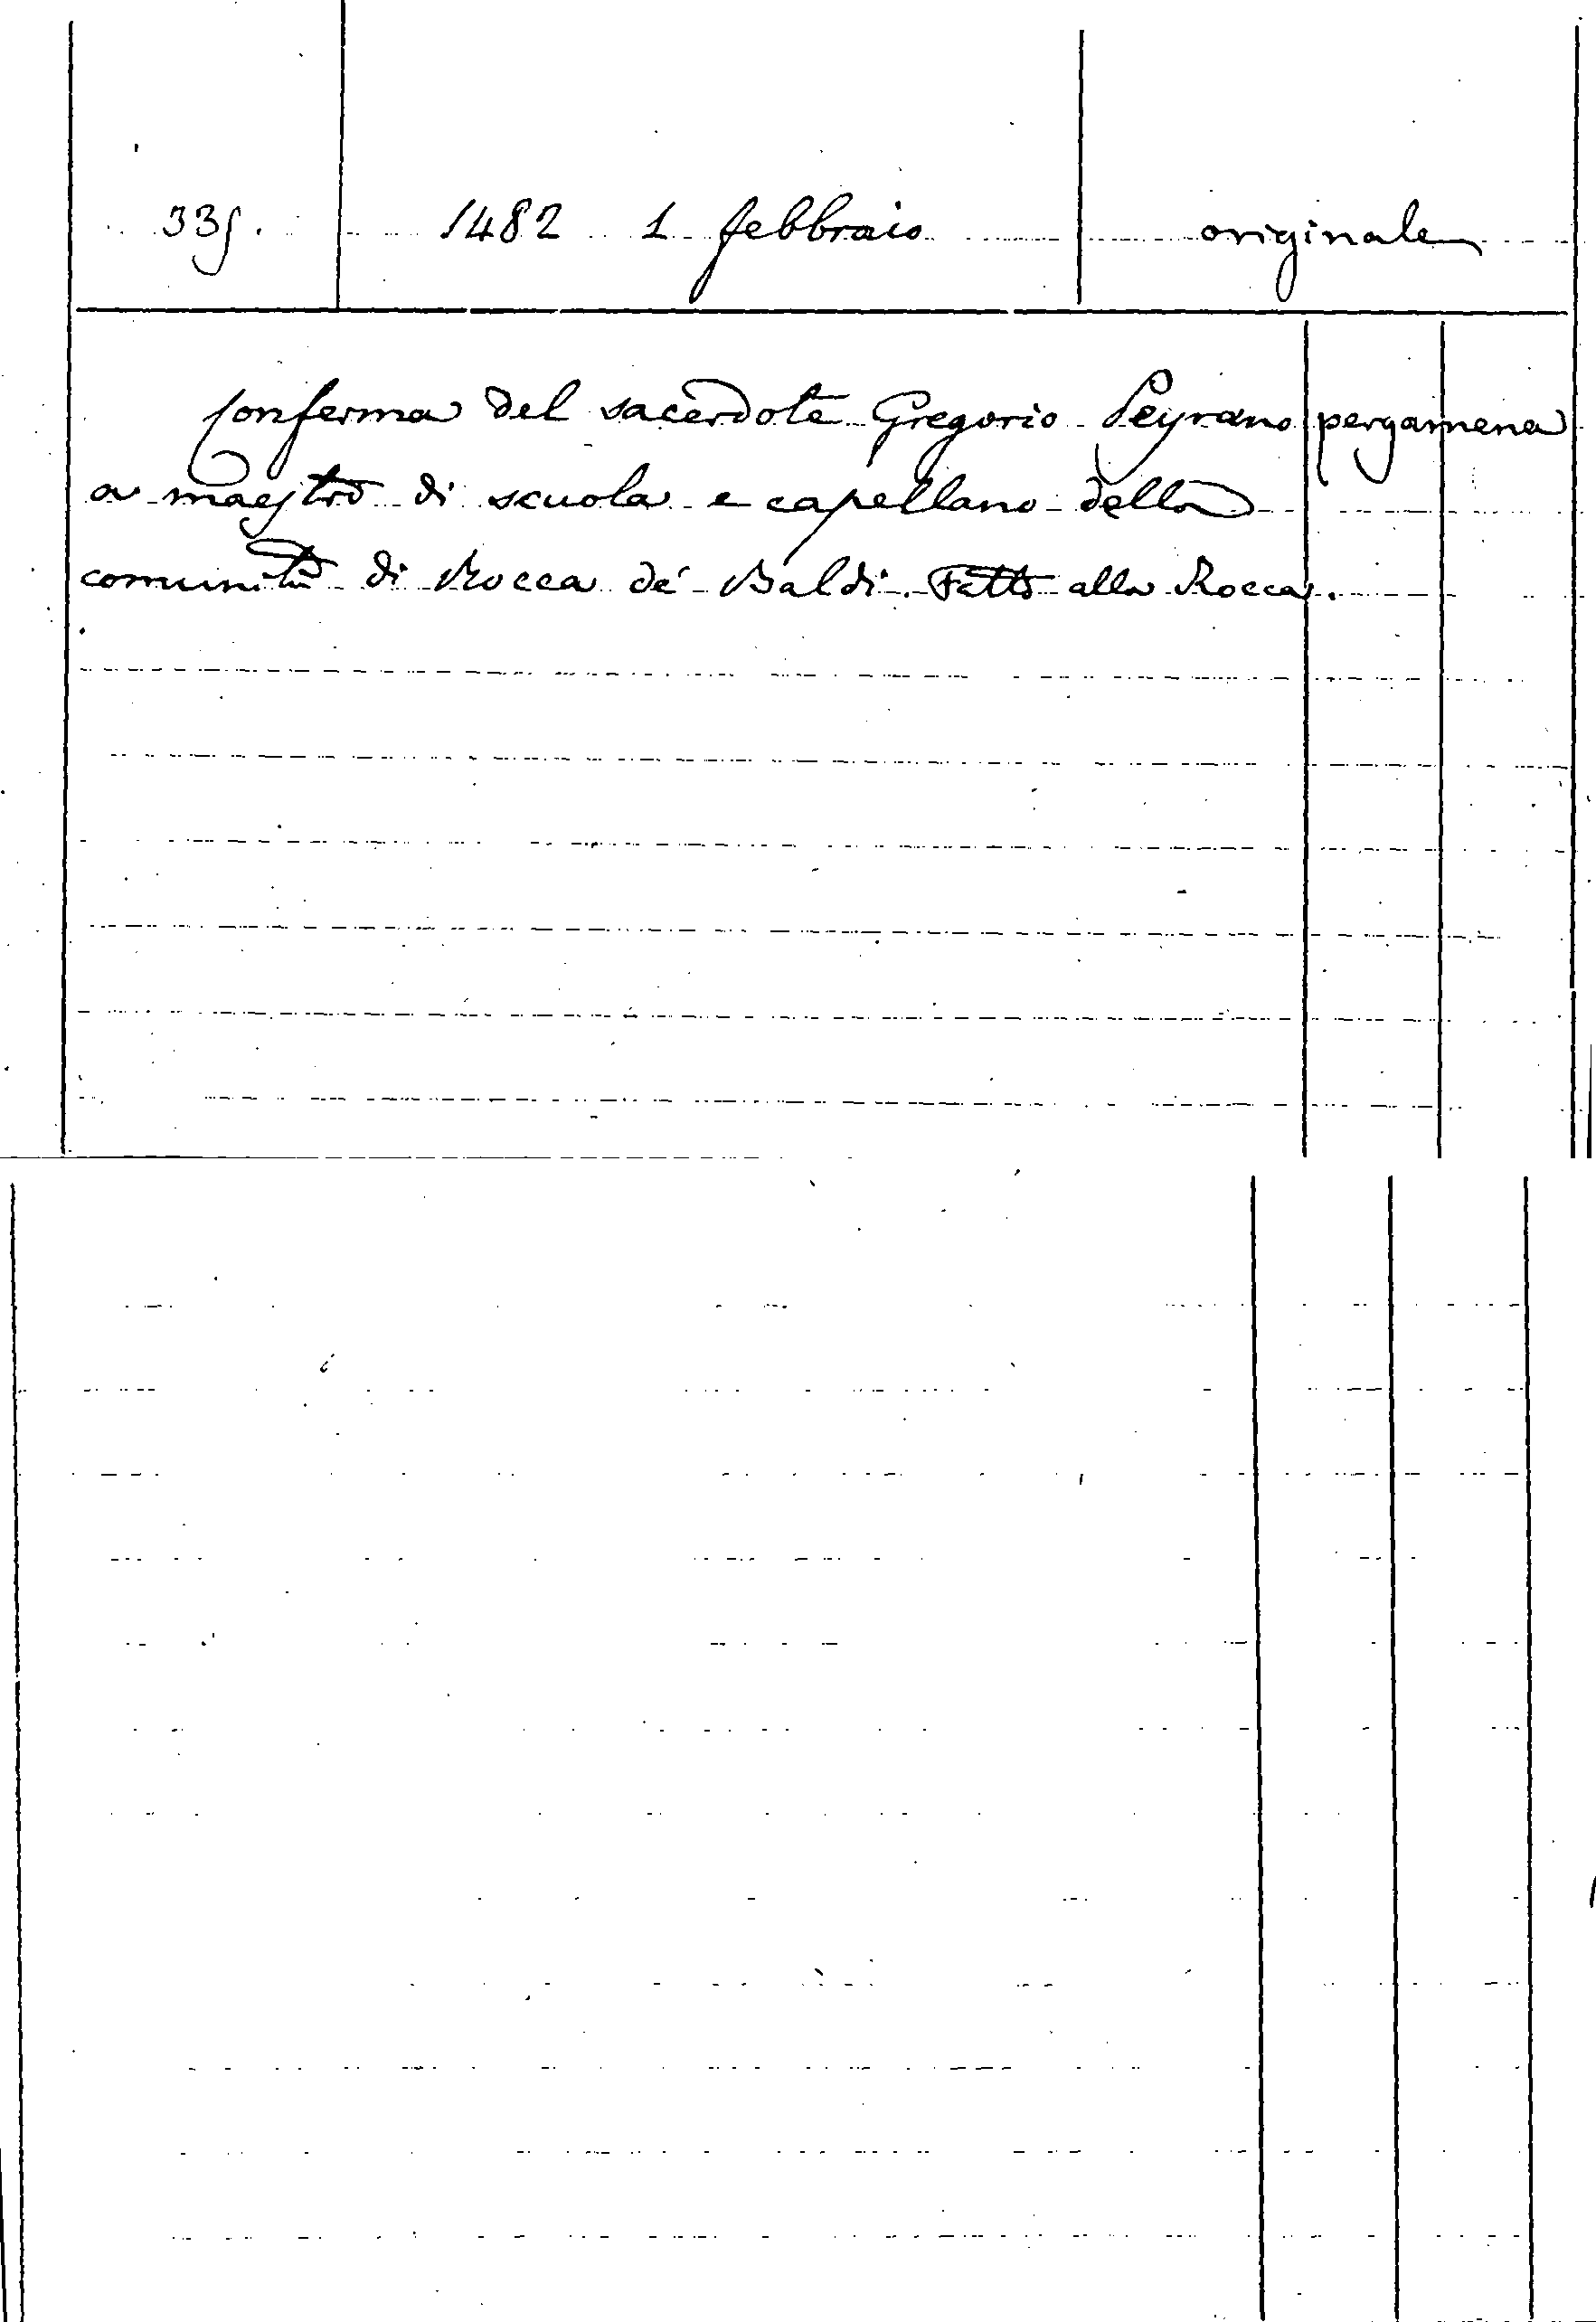 335. 1482 1 febbraio originale
Conferma del sacerdote Gregorio Peyrano pergamena
a maestro di scuola e capellano della
comunità di Rocca de' Baldi. Fatto alla Rocca.